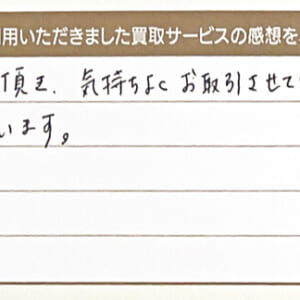 用いただきました買取サービスの感想を
頂き、気持ちよくお取引させて
います。